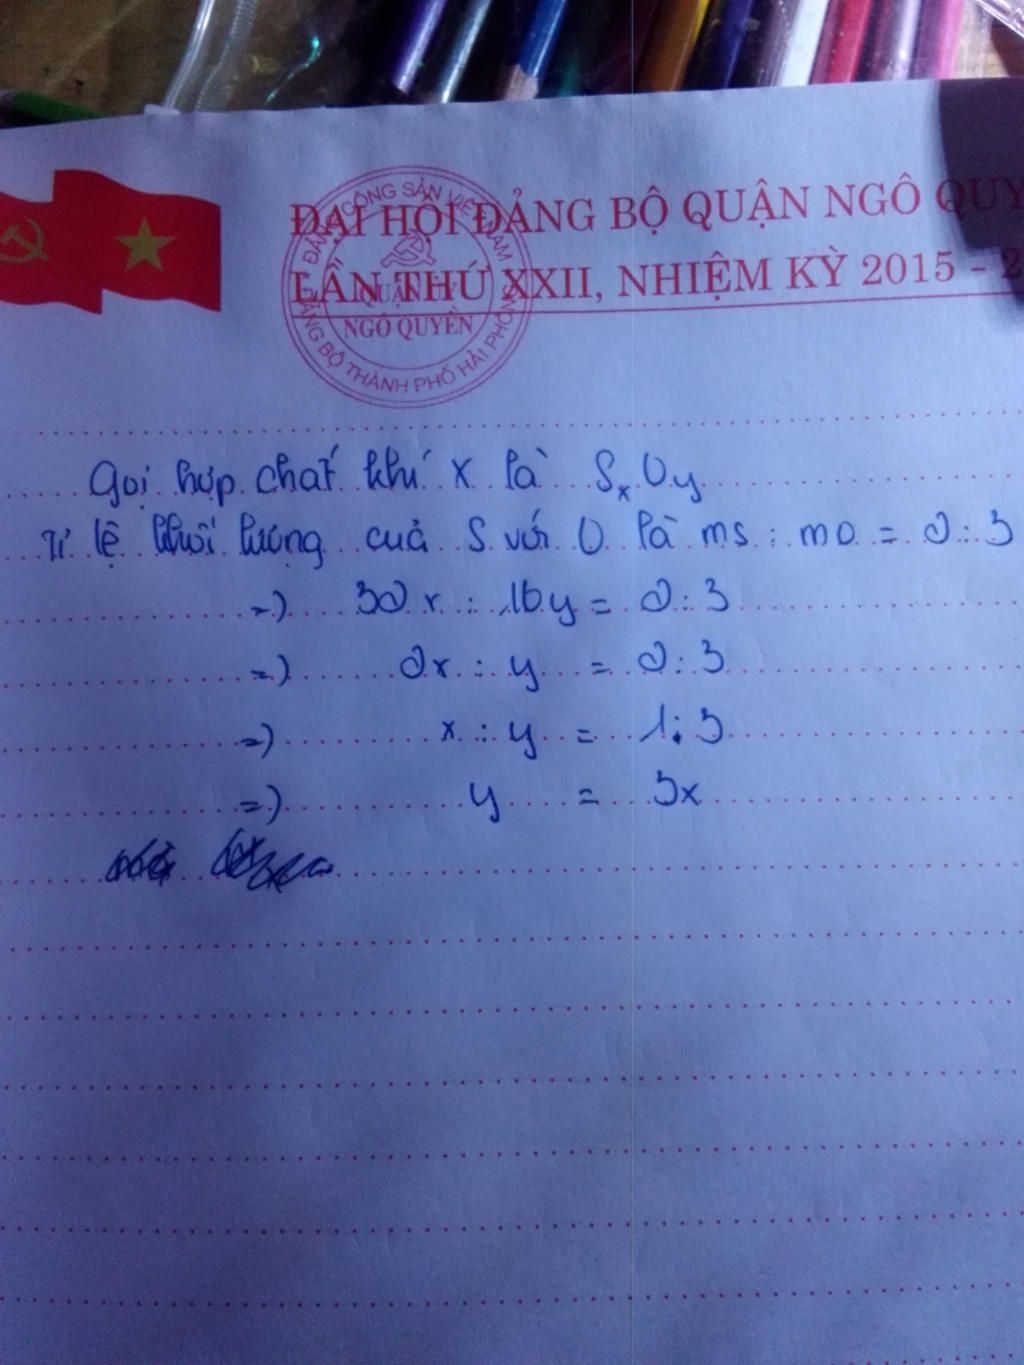 ĐẠI HỘI ĐẢNG BỘ QUẬN NGÔ QUY
LẦN THỨ XXII, NHIỆM KỲ 2015 - 2
ĐẢNG CỘNG SẢN VIỆT NAM
QUẬN
NGÔ QUYỀN
ĐẢNG BỘ THÀNH PHỐ HẢI PHÒNG
Gọi hợp chất khí X là SxOy
Tỉ lệ khối lượng của S với O là mS : mO = 2 : 3
=) 32x : 16y = 2 : 3
=) 2x : y = 2 : 3
=) x : y = 1 : 3
=) y = 3x